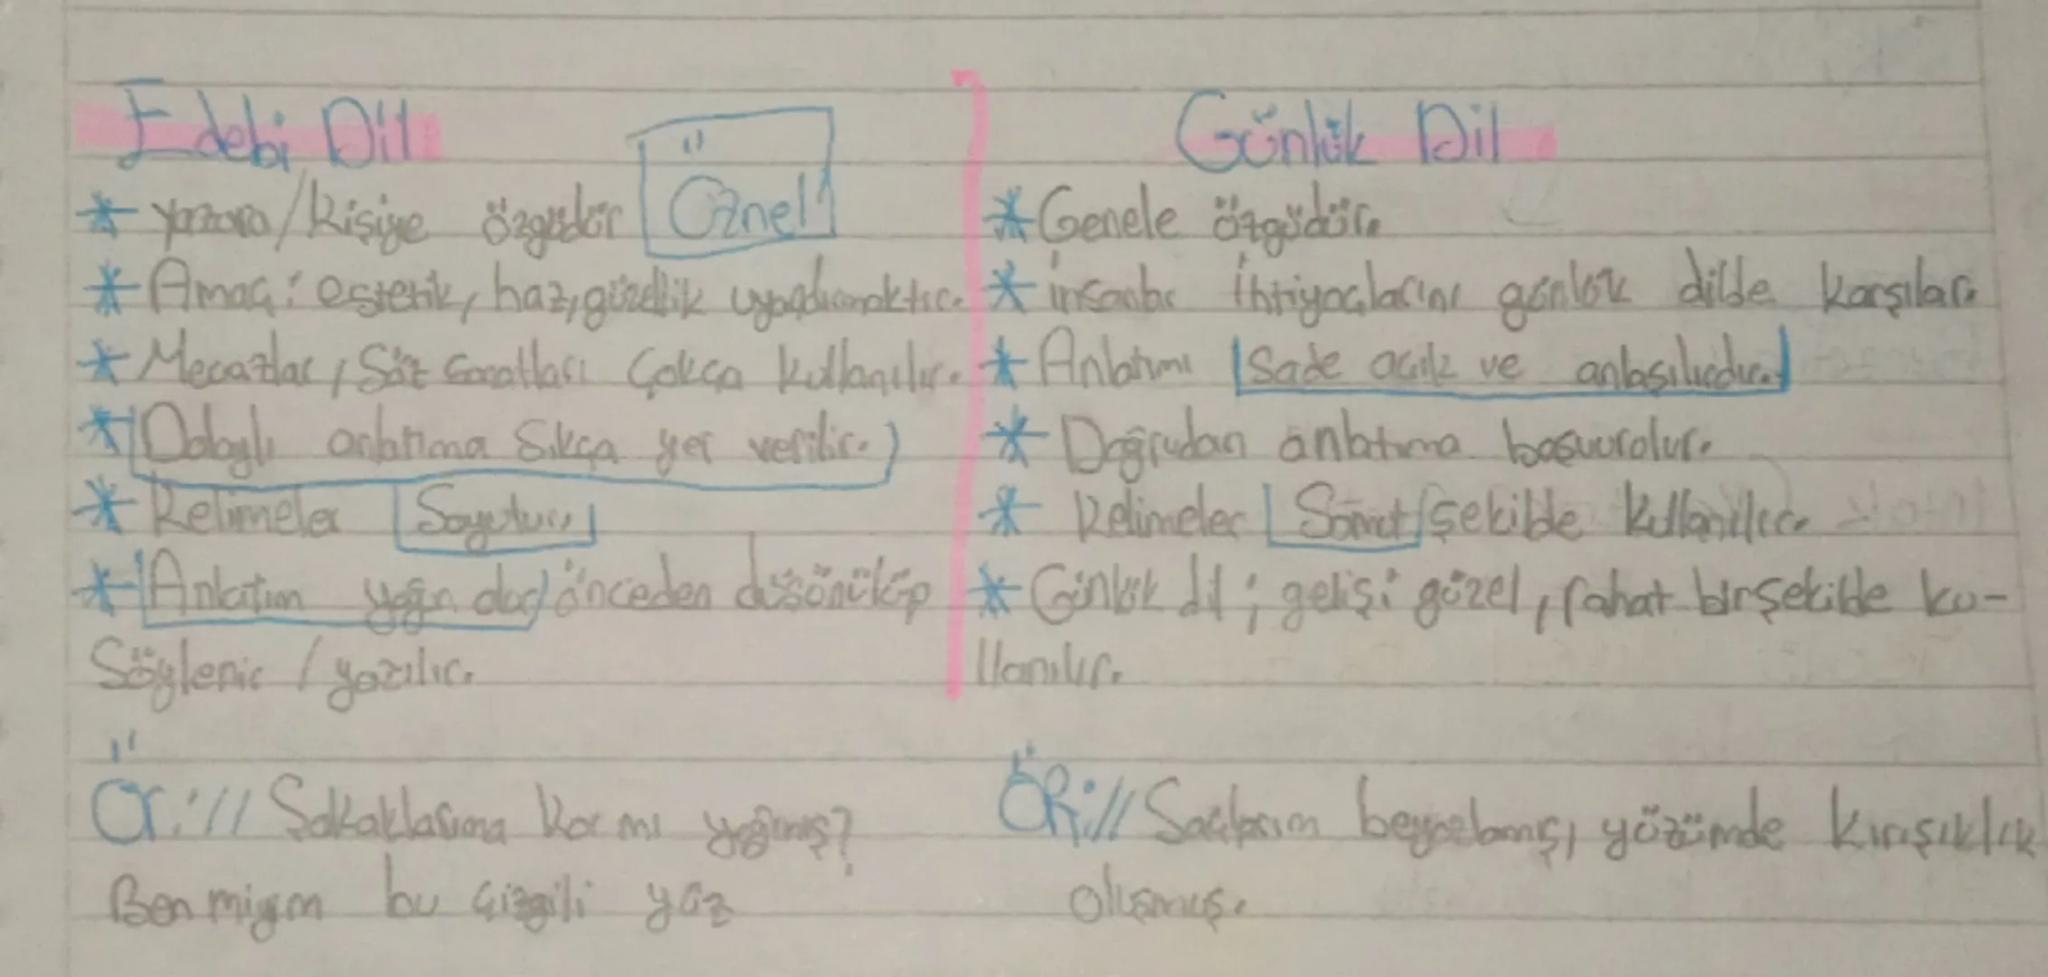 Edebi Dil
* yazara/kişiye özgüdür Öznel
* Amaç: estetik, haz, güzellik uyandırmaktır.
* Mecazlar, Söz Sanatları Çokça kullanılır.
* Dolaylı anlatıma Sıkça yer verilir.
* Kelimeler Soyuttur.
* Anlatım yoğundur önceden düşünülüp
Söylenir / yazılır.
Ör:// Şakaklarıma kar mı yağmış?
Ben miyim bu çizgili yüz
Günlük Dil
* Genele özgüdür.
* insanlar ihtiyaçlarını günlük dilde karşılar.
* Anlatımı Sade açık ve anlaşılırdır.
* Doğrudan anlatıma başvurulur.
* Kelimeler Somut şekilde kullanılır.
* Günlük dil; gelişi güzel, rahat birşekilde ku-
llanılır.
ÖR:// Saçlarım beyazlamış, yüzümde kırışıklık
oluşmuş.